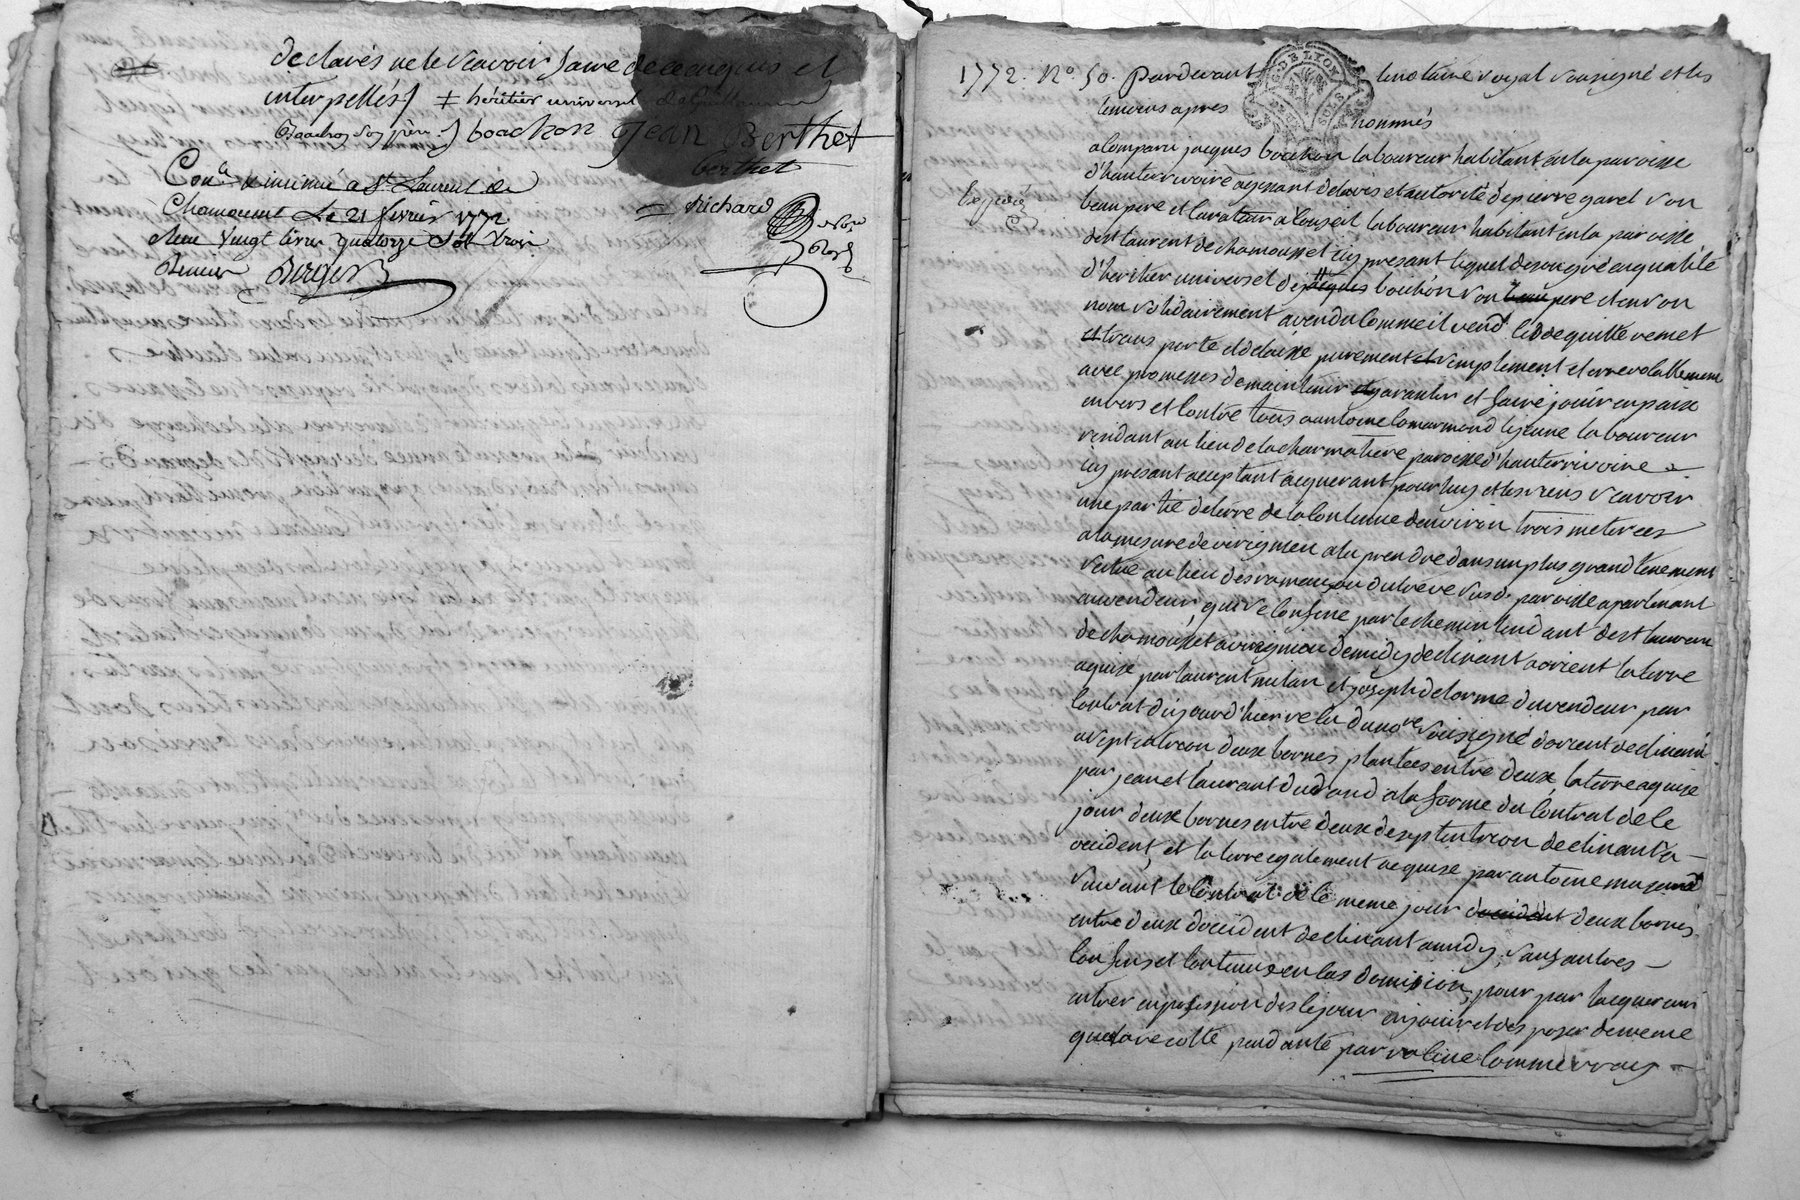 declarés ne le scavoir faire de ce enquis et
interpellés / ‡ héritier universel de Guillaume
Boachon son père ·/ boachon Jean Berthet
berthet
Con.le & insinué a St. Laurent de
Chamousset Le 21 fevrier 1772
Reçu vingt livres quatorze sols trois
Deniers Berger
richard
1772. No. 50. Pardevant le notaire royal sousigné et les
temoins apres nommés
G. DE LYON
SOLS
a comparu jacques boachon laboureur habitant en la paroisse
d'hauterivoire agissant de lavis et autorité de pierre garel son
Expedié
beau pere et curateur a conseil laboureur habitant en la paroisse
de st laurent de chamousset icy présant lequel de son gré en qualité
d'heritier universel de jacques boachon son beau pere et en son
nom solidairement a vendu comme il vend cedde quitte remet
et transporte et delaisse purement et simplement et irrevocablement
avec promesses de maintenir et garantir et faire jouir en paix
envers et contre tous a antoine comarmond le jeune laboureur
residant au lieu de la charmatiere paroisse d'hauterrivoire
icy présant acceptant acquerant pour luy et les siens scavoir
une partie de terre de la contenue denviron trois meterees
a la mesure de virigneu a la prendre dans un plus grand tenement
scitué au lieu des rameaux ou dutreve susd. paroisse apartenant
au vendeur, qui se confine par le chemin tendant de st laurent
de chamousset a virigneu de midy declinant a orient la terre
aquise par laurent milan et joseph delorme du vendeur par
contrat dujourd'huer recu du nore. sousigné dorient declinant
a septentrion deux bornes plantées entre deux, la terre aquise
par jean et laurant dudand a la forme du contrat de ce
jour deux bornes entre deux de septentrion declinant a
occident, et la terre egalement acquise par antoine
suivant le contrat de ce meme jour doccident deux bornes
entre deux doccident declinant a midy, sauf autres
confins et contenue en cas domision, pour par lacquereur
entrer en possession des ce jour en jouir et disposer de meme
que la recolte pendante par racine comme vray